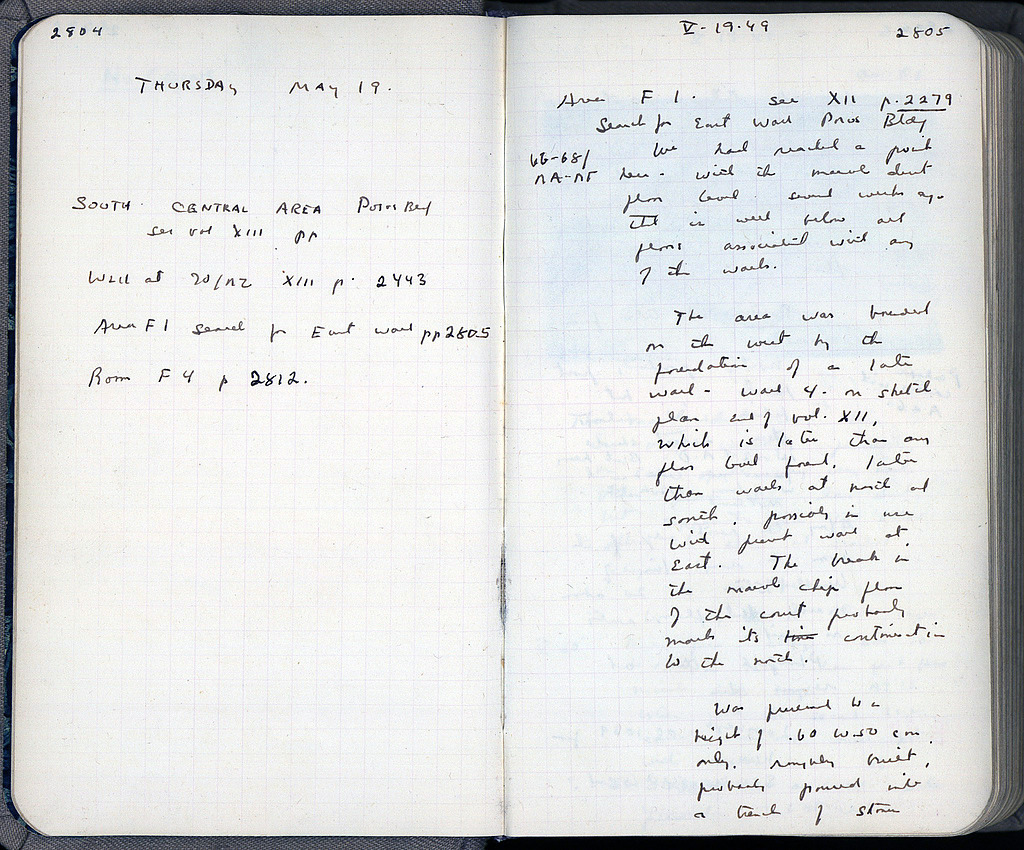 2804
THURSDAY MAY 19.
SOUTH CENTRAL AREA Poros Bldg
see vol XIII pp
Well at 20/ XIII p. 2443
Area F1 search for East wall pp 2805
Room F4 p 2812.
V-19-49
2805
Area F1. see XII p. 2279
Search for East Wall Poros Bldg
66-68/ We had reached a point
here - with the marble dust
floor level several weeks ago
It is well below all
floors associated with any
of the walls.
The area was bounded
on the west by the
foundation of a late
wall - wall 4 - on sketch
plan end of vol. XII,
which is later than any
floor level found, later
than walls at north and
south, possibly in use
with wall at
East. The break in
the marble chip floor
of the court probably
marks its line continuation
to the north.
Was preserved to a
height of .60 to .50 cm.
only, roughly built,
probably poured into
a trench of stone